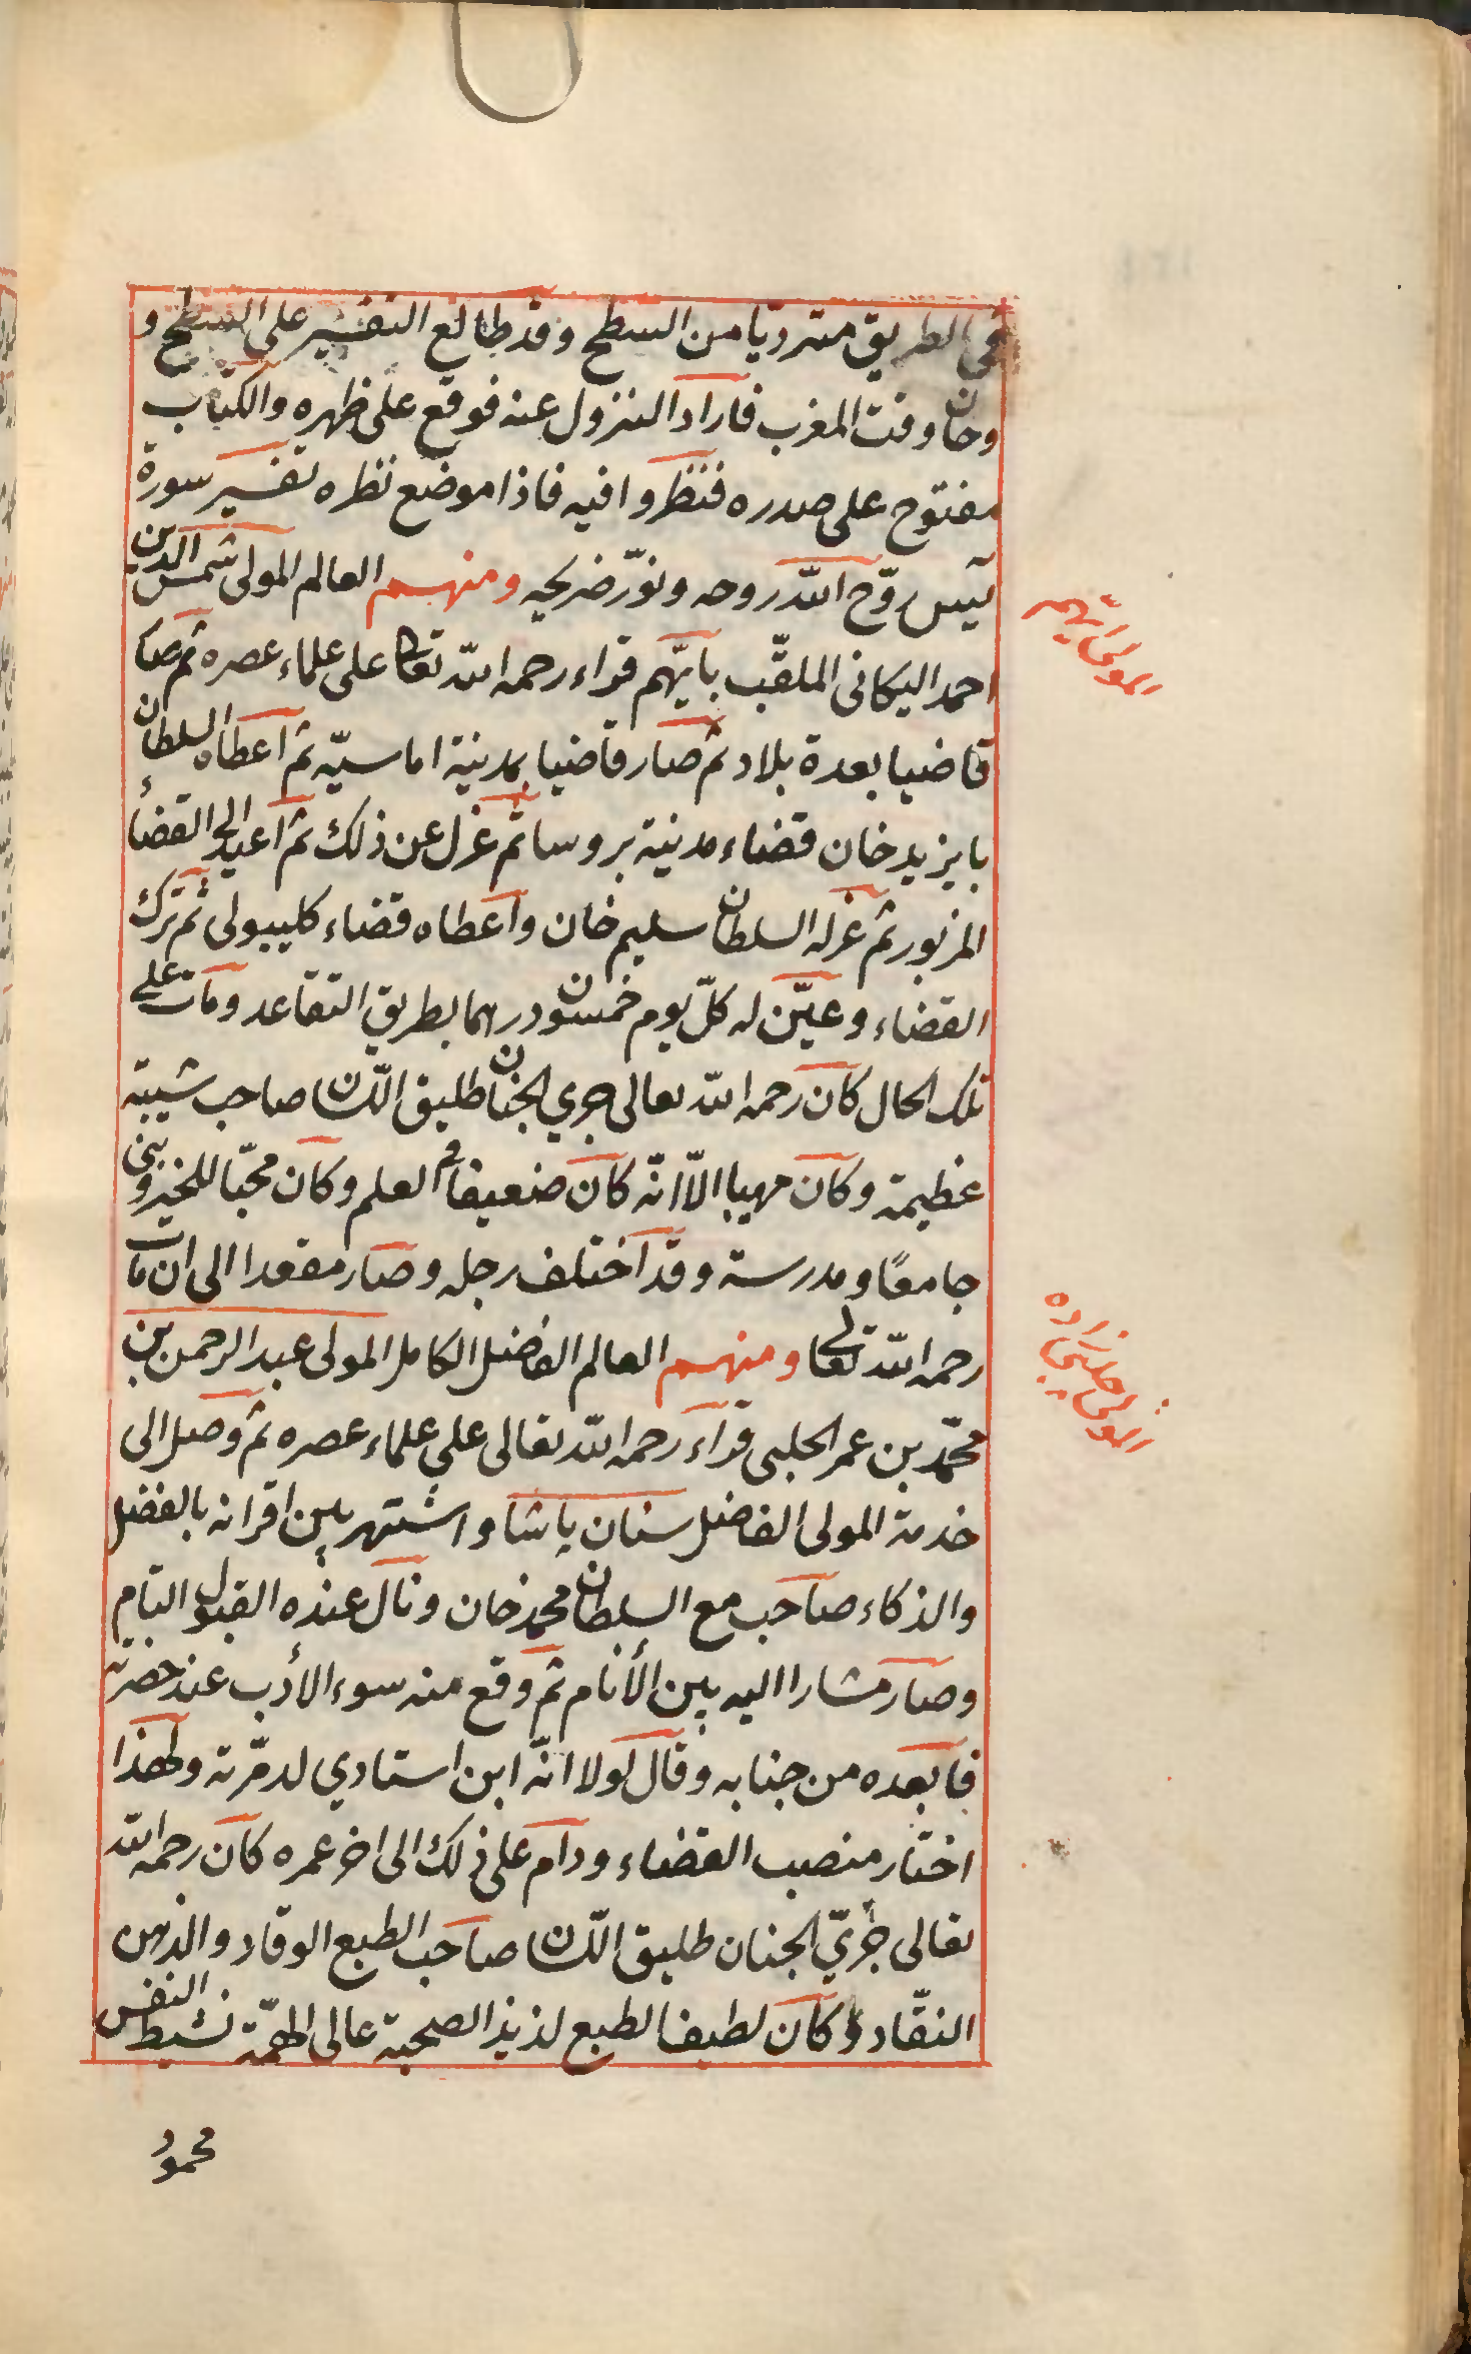 في الطريق مترديا من السطح وقد طالع التفسير على السطح و
وحان وقت المغرب فاراد النزول عنه فوقع على ظهره والكتاب
مفتوح على صدره فنظروا فيه فاذا موضع نظره تفسير سورة
يٓس روّح الله روحه ونوّر ضريحه ومنهم العالم المولى شمس الدين
احمد اليكانى الملقّب بايّهم قراء رحمه الله تعالى على علماء عصره ثم صار
قاضيا بعدة بلاد ثم صار قاضيا بمدينة اماسيّه ثم اعطاه السلطان
بايزيد خان قضاء مدينة بروسا ثم عزل عن ذلك ثم اعيد الى القضاء
المزبور ثم عزله السلطان سليم خان واعطاه قضاء كليبولى ثم ترك
القضاء وعيّن له كلّ يوم خمسون درهما بطريق التقاعد ومات على
تلك الحال كان رحمه الله تعالى جري الجنان طليق اللّسان صاحب شيبة
عظيمة وكان مهيبا الاّ انّه كان ضعيفا في العلم وكان محبّا للخير وبنى
جامعًا ومدرسة وقد اختلف رجله وصار مقعدا الى ان مات
رحمه الله تعالى ومنهم العالم الفاضل الكامل المولى عبد الرحمن بن
محمّد بن عمر الحلبى قراء رحمه الله تعالى على علماء عصره ثم وصل الى
خدمة المولى الفاضل سنان پاشا واشتهر بين اقرانه بالفضل
والذكاء صاحب مع السلطان محمد خان ونال عنده القبول التام
وصار مشارا اليه بين الأنام ثم وقع منه سوء الأدب عند حضرته
فابعده من جنابه وقال لولا انّه ابن استادي لدمّرته ولهذا
اختار منصب القضاء ودام على ذلك الى اخر عمره كان رحمه الله
تعالى جريّ الجنان طليق اللّسان صاحب الطبع الوقاد والذهن
النقّاد وكان لطيف الطبع لذيذ الصحبة عالى الهمّة نشيط النفس
محمود
المولى ايّهم
المولى حلبى زاده